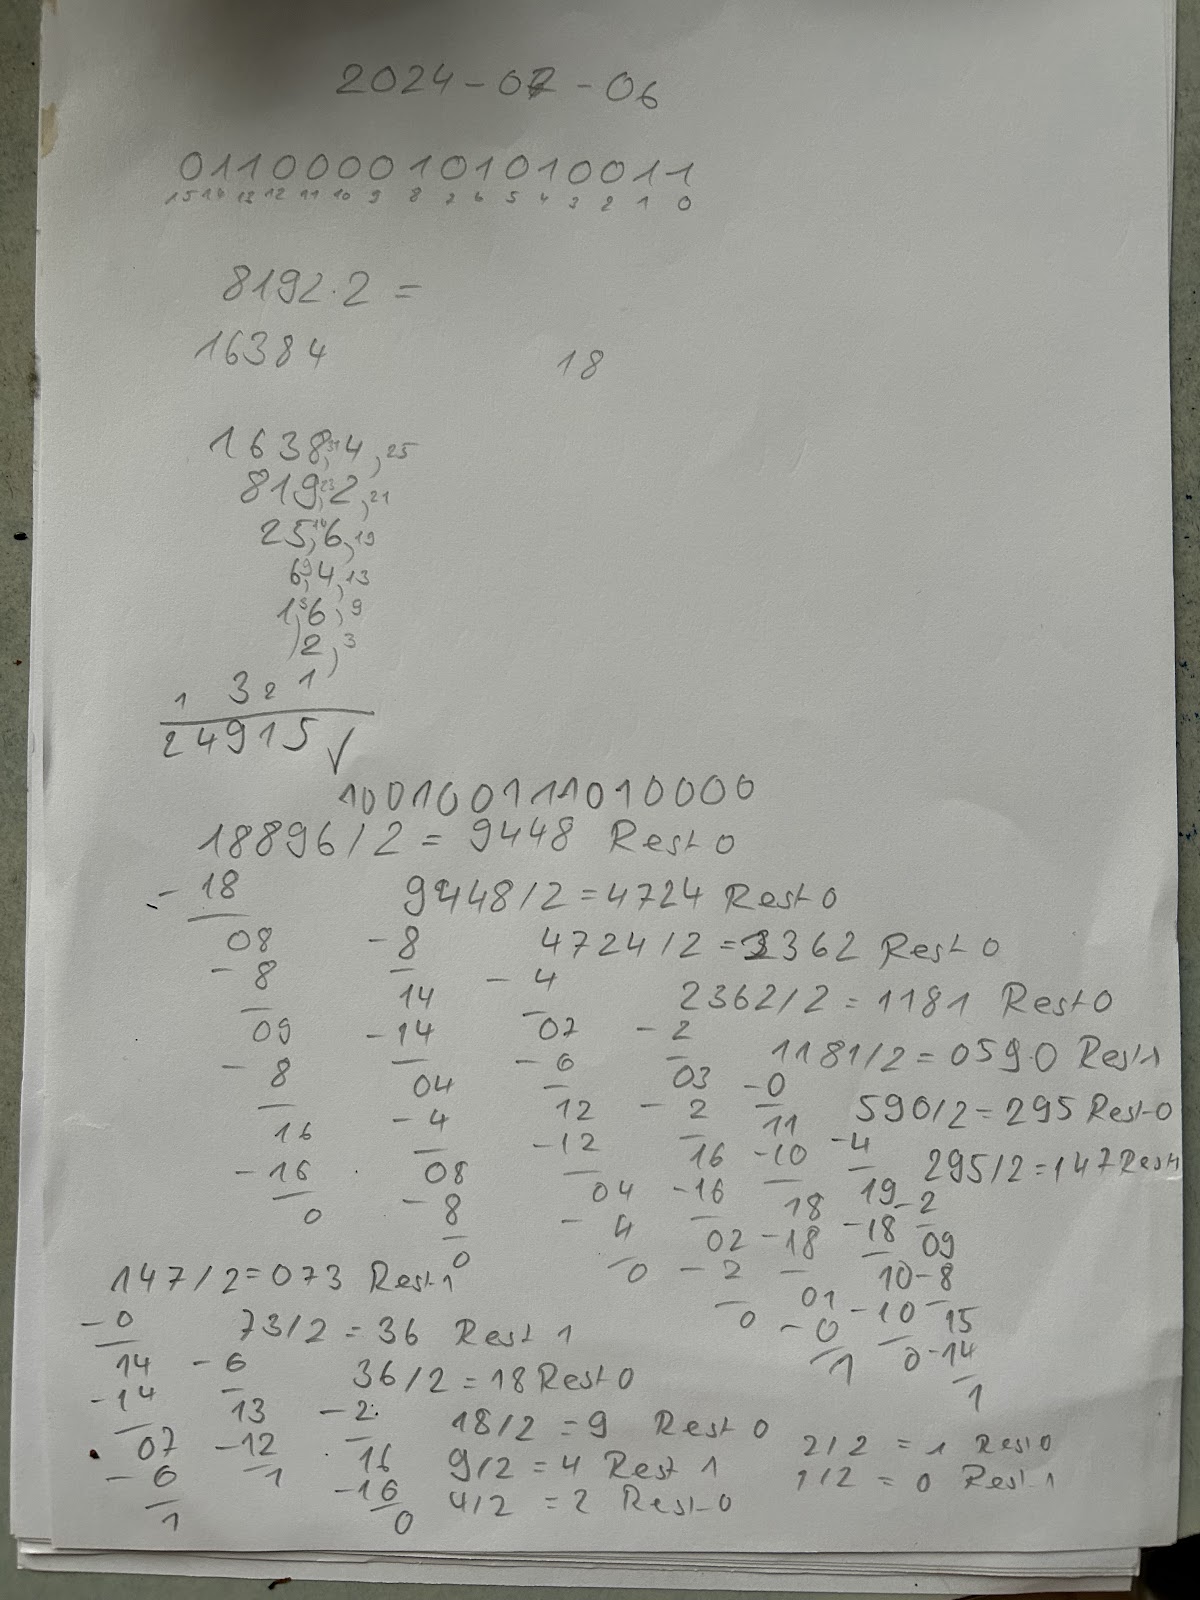 2024-07-06
0110000101010011
15 14 13 12 11 10 9 8 7 6 5 4 3 2 1 0
8192·2 =
16384
18
16384,25
8192,21
256,19
64,13
16,9
2,3
1 3 2 1
24915 √
100100111010000
18896/2 = 9448 Rest 0
- 18
9448/2 = 4724 Rest 0
08
- 8
4724/2 = 2362 Rest 0
- 8
14
- 4
2362/2 = 1181 Rest 0
09
- 14
07
- 2
1181/2 = 0590 Rest 1
- 8
04
- 6
03
- 0
590/2 = 295 Rest 0
16
- 4
12
- 2
11
- 4
295/2 = 147 Rest 1
- 16
08
- 12
16
- 10
19
- 2
0
- 8
04
- 16
18
- 18
09
0
- 4
02
- 18
10
- 8
0
- 2
01
- 10
15
0
- 0
0
- 14
1
1
147/2 = 073 Rest 1
- 0
73/2 = 36 Rest 1
14
- 6
36/2 = 18 Rest 0
- 14
13
- 2
18/2 = 9 Rest 0
07
- 12
16
9/2 = 4 Rest 1
- 6
1
- 16
4/2 = 2 Rest 0
1
0
2/2 = 1 Rest 0
1/2 = 0 Rest 1